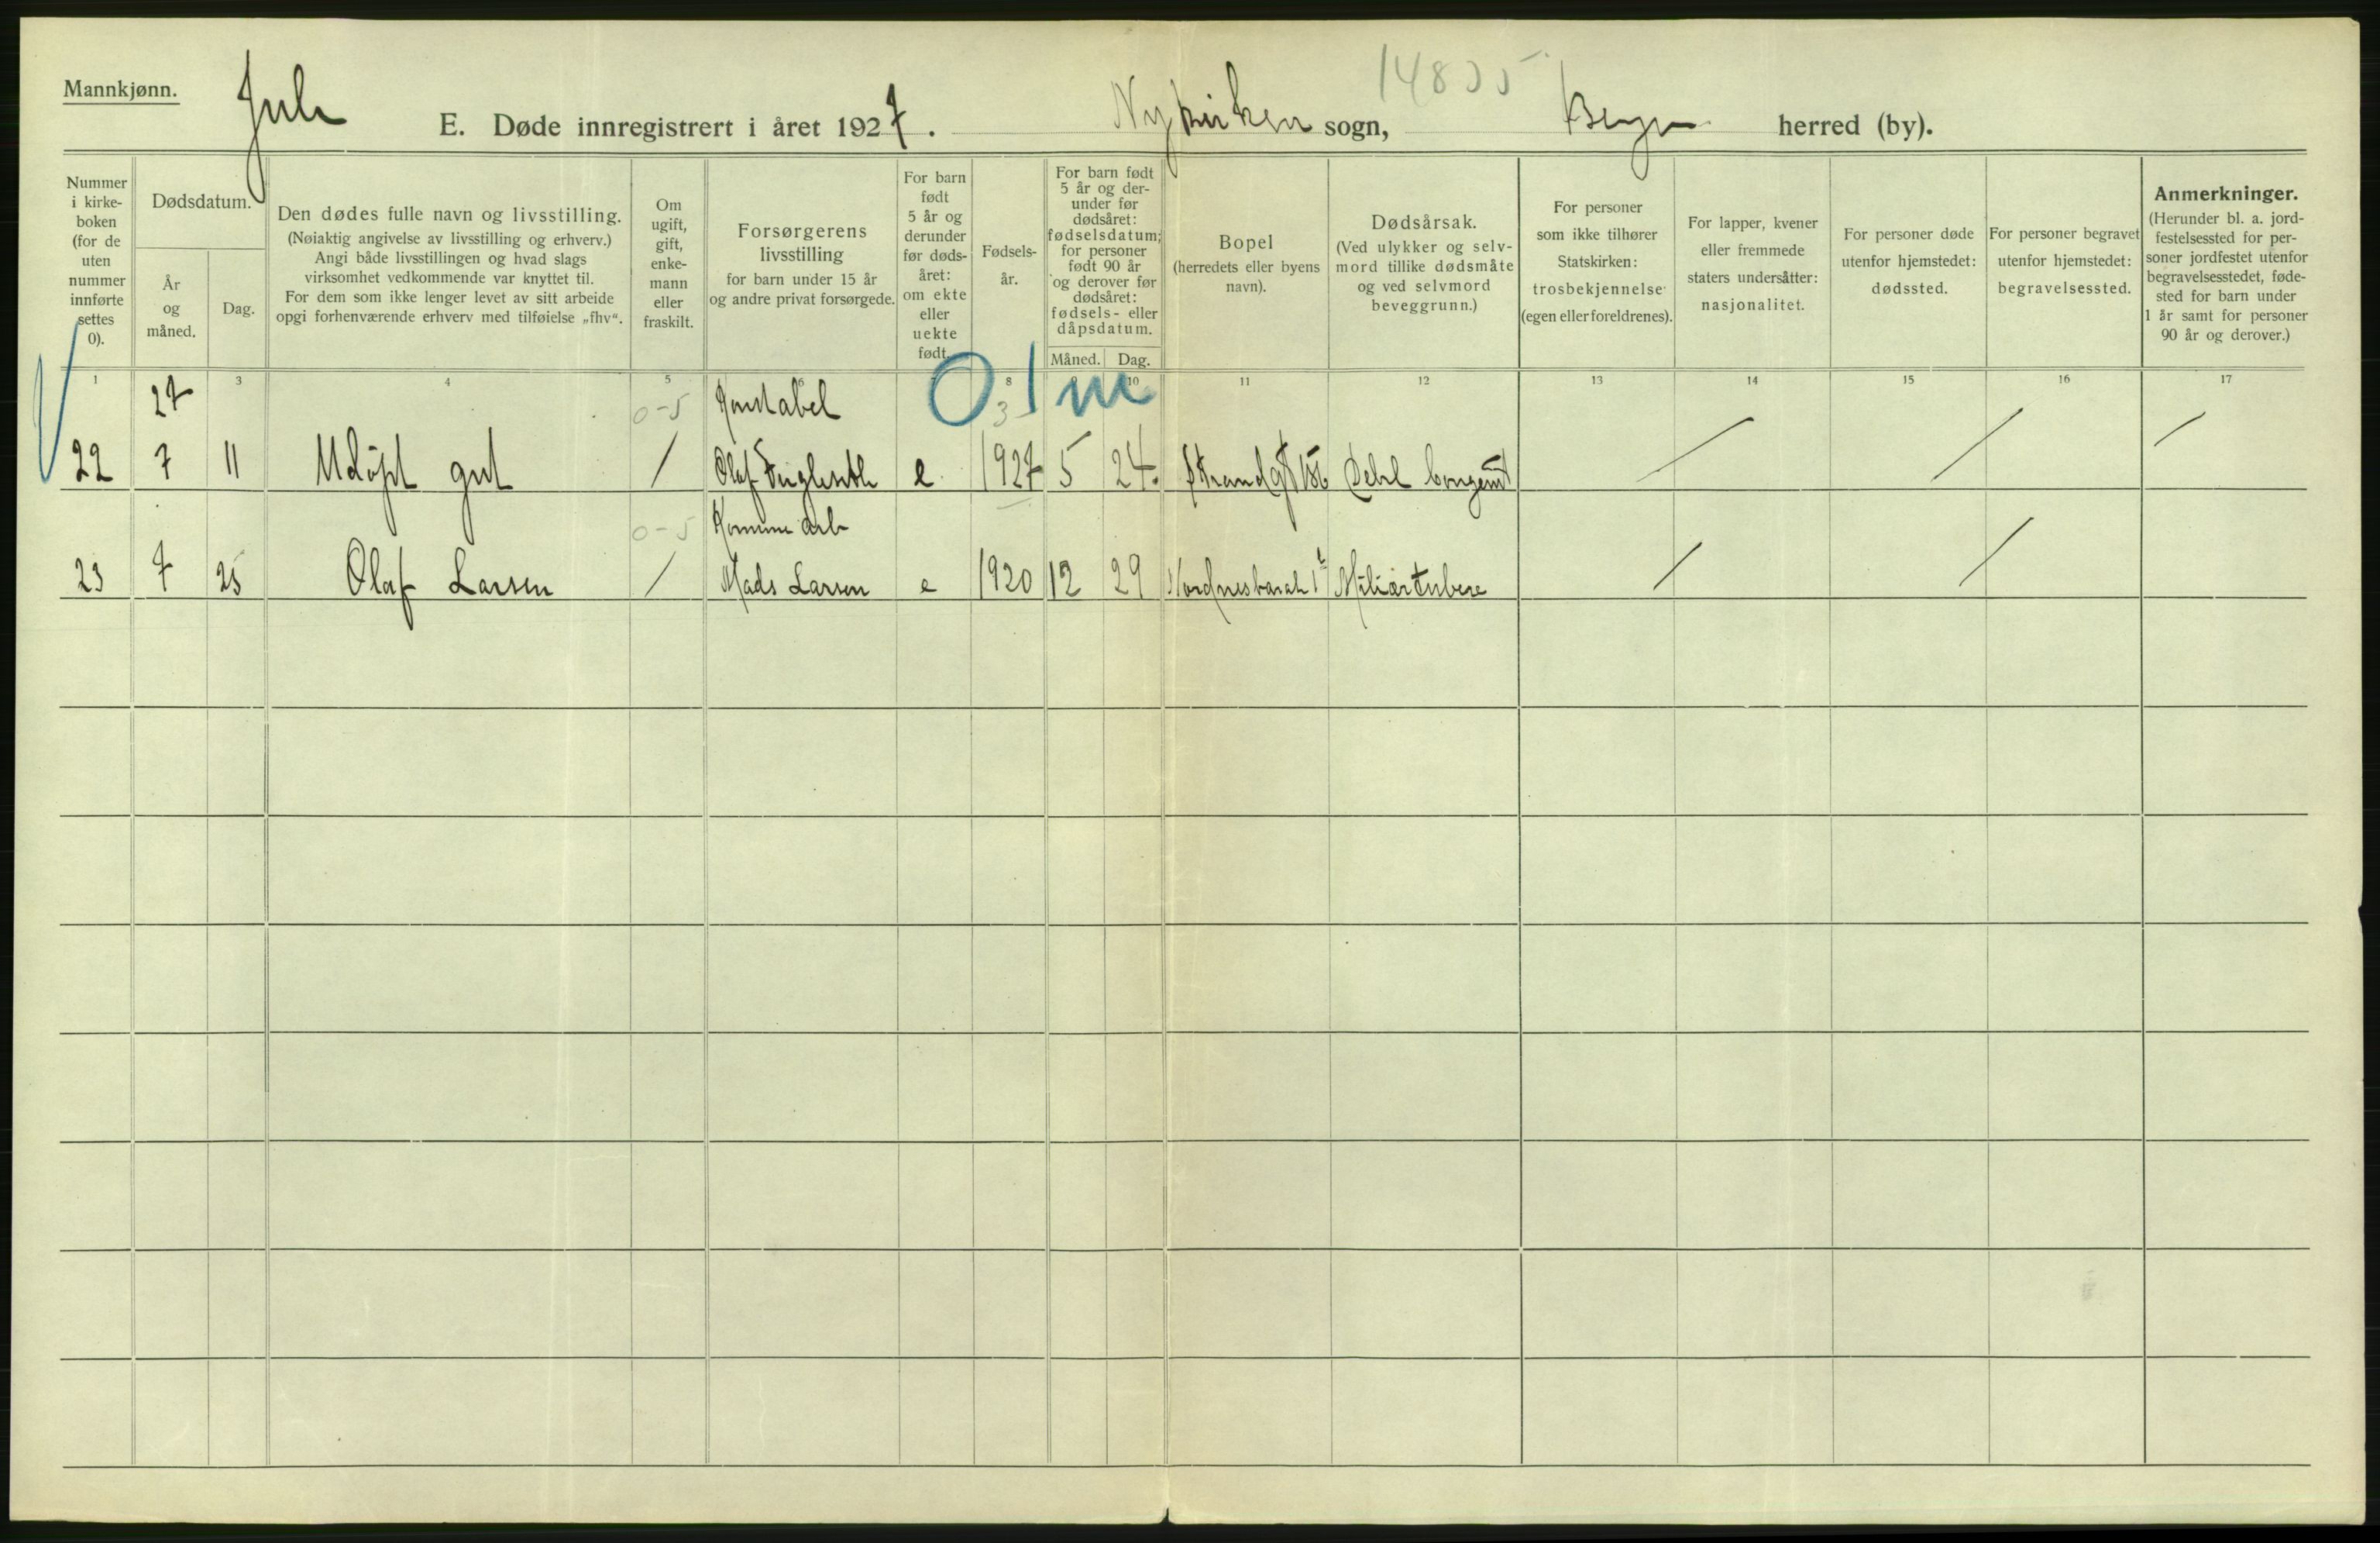 Mannkjønn.
Juli
E. Døde innregistrert i året 1927. Nykirken sogn, Bergen herred (by).
14835
Nummer i kirke-boken (for de uten nummer innførte settes 0).
Dødsdatum.
År og måned.
Dag.
Den dødes fulle navn og livsstilling.
(Nøiaktig angivelse av livsstilling og erhverv.)
Angi både livsstillingen og hvad slags
virksomhet vedkommende var knyttet til.
For dem som ikke lenger levet av sitt arbeide
opgi forhenværende erhverv med tilføielse „fhv“.
Om
ugift,
gift,
enke-
mann
eller
fraskilt.
Forsørgerens
livsstilling
for barn under 15 år
og andre privat forsørgede.
For barn
født
5 år og
derunder
før døds-
året:
om ekte
eller
uekte
født.
Fødsels-
år.
For barn født
5 år og der-
under før
dødsåret:
fødselsdatum;
for personer
født 90 år
og derover før
dødsåret:
fødsels- eller
dåpsdatum.
Måned. Dag.
Bopel
(herredets eller byens
navn).
Dødsårsak.
(Ved ulykker og selv-
mord tillike dødsmåte
og ved selvmord
beveggrunn.)
For personer
som ikke tilhører
Statskirken:
trosbekjennelse
(egen eller foreldrenes).
For lapper, kvener
eller fremmede
staters undersåtter:
nasjonalitet.
For personer døde
utenfor hjemstedet:
dødssted.
For personer begravet
utenfor hjemstedet:
begravelsessted.
Anmerkninger.
(Herunder bl. a. jord-
festelsessted for per-
soner jordfestet utenfor
begravelsesstedet, føde-
sted for barn under
1 år samt for personer
90 år og derover.)
1 3 4 5 6 7 8 9 10 11 12 13 14 15 16 17
27 0-5 Konstabel 0,1 m
3
22 7 11 Udøpt gut / Olaf e 1927 5 24. Strandgt Debil congenit / / /
0-5 Komune arb
23 7 25 Olaf Larsen / Mads Larsen e 1920 12 29 Miliærtuberc / /